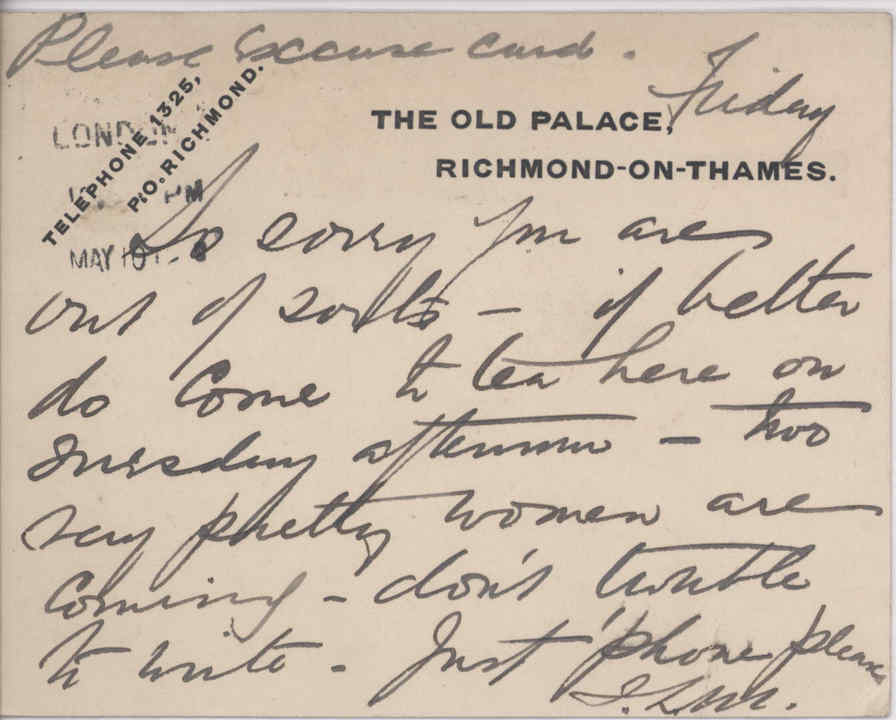 Please excuse card.
Friday
TELEPHONE 1325,
P.O. RICHMOND.
THE OLD PALACE,
RICHMOND-ON-THAMES.
LONDON
PM
MAY 10
So sorry you are
out of sorts – if better
do come to tea here on
Tuesday afternoon – two
very pretty women are
coming – don't trouble
to write – Just 'phone please